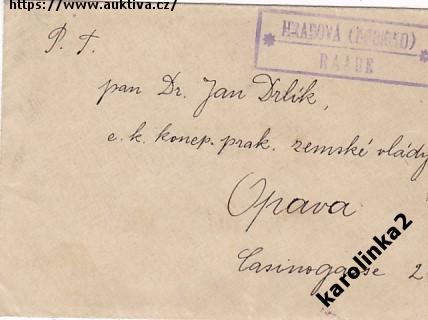 https://www.auktiva.cz/
HRABOVÁ
RAABE
P. T.
pan Dr. Jan Drlík,
c. k. konc. prak. zemské vlády
Opava
Casinogasse 2
karolinka2